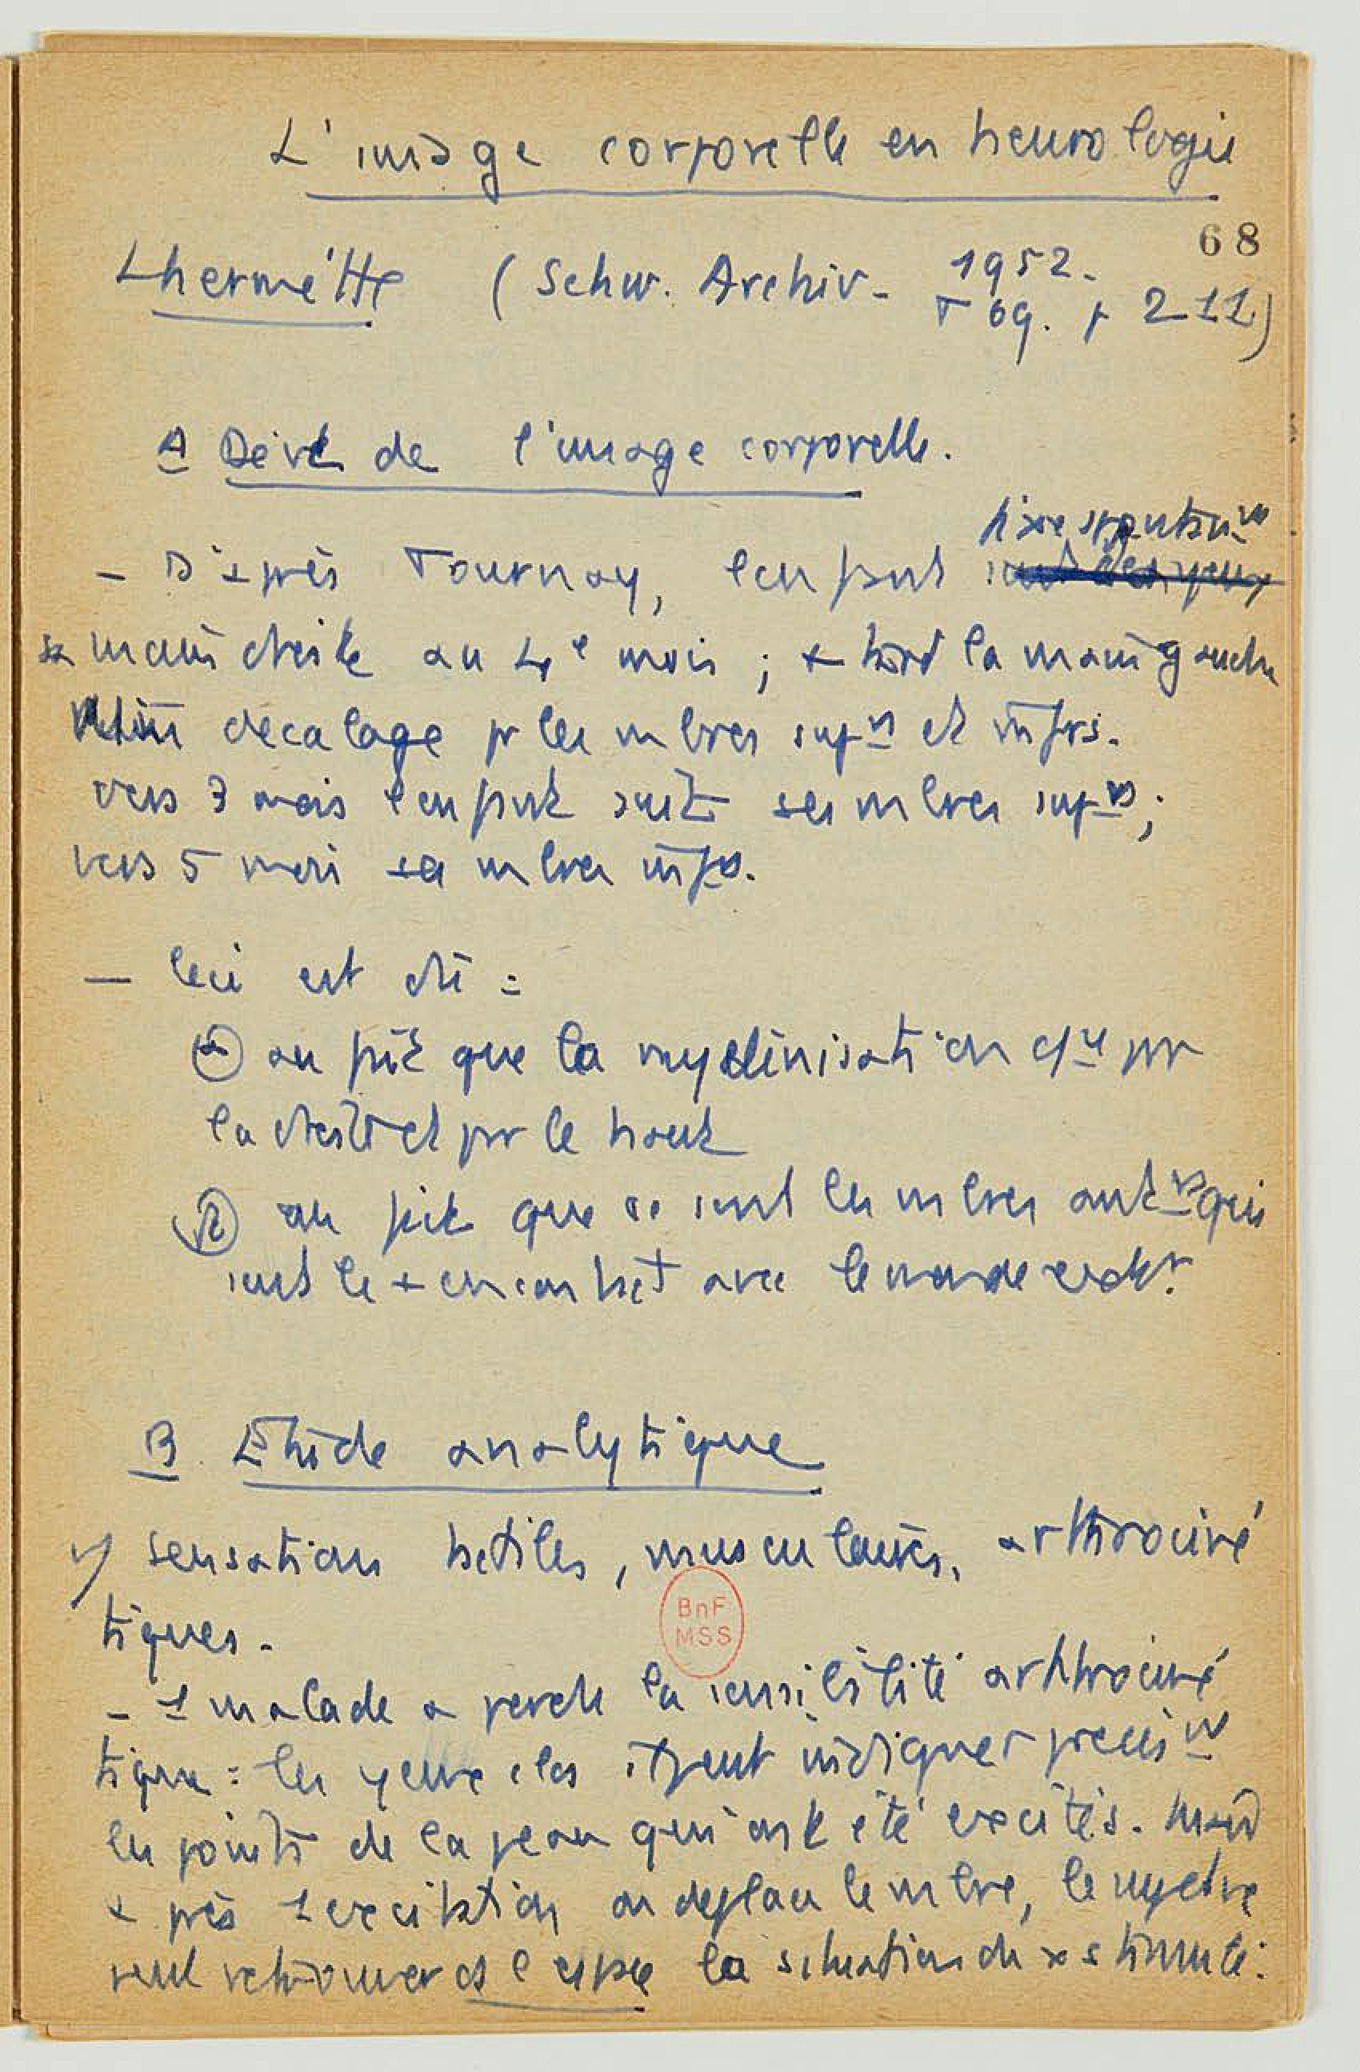 L'image corporelle en neurologie
68
Lhermitte (Schw. Archiv. 1952.
T 69. p 211)
A Devt de l'image corporelle.
fixe spontanmt
- D'après Tournay, l'enfant
sa main droite au 4e mois ; + tard la main gauche
décalage pr les mbres suprs et infrs.
vers 3 mois l'enfant suit ses mbres suprs ;
vers 5 mois ses mbres infrs.
- Ceci est dû :
au fait que la myelinisation pr
la droite et pr le haut
au fait que ce sont les mbres antrs qui
sont le + en contact avec le monde extr.
B. Etude analytique
1/ Sensations tactiles, musculaires, arthrociné
tiques.
- 1 malade a perdu la sensibilité arthrociné
tique : les yeux clos il peut indiquer précismt
les points de la peau qui ont été excités. Mais si
après 1 excitation on déplace le mbre, le sujet ne
peut retrouver ds l'espace la situation du x stimulé :
BnF
MSS